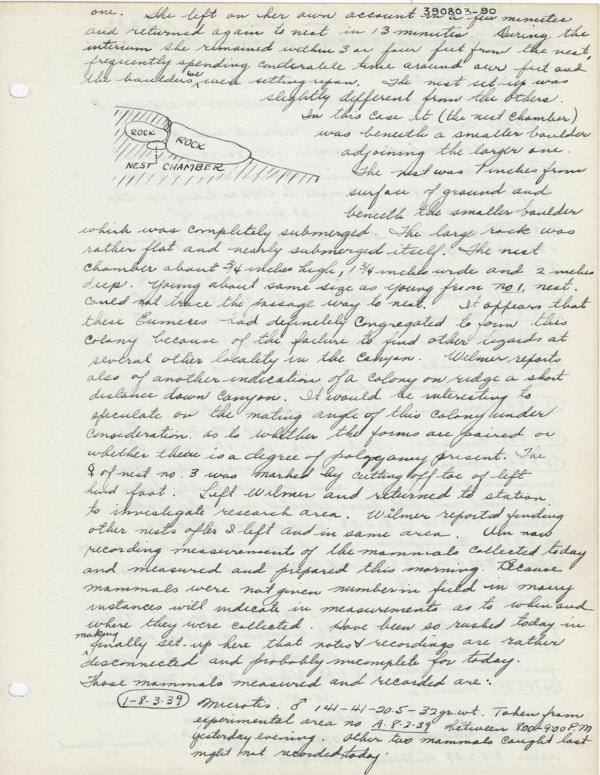 390803-90
one. She left on her own account in a few minutes
and returned again to nest in 13 minutes. During the
interium she remained within 3 or four feet from the nest,
frequently spending considerate time around our feet and
the boulders we were setting upon. The nest set-up was
slightly different from the others.
In this case it (the nest chamber)
was beneath a smaller boulder
adjoining the larger one.
The nest was 7 inches from
surface of ground and
beneath the smaller boulder
ROCK
ROCK
NEST CHAMBER
which was completely submerged. The large rock was
rather flat and nearly submerged itself. The nest
chamber about 3/4 inches high, 1 3/4 inches wide and 2 inches
deep. Young about same size as young from no 1. nest.
Could not trace the passage way to nest. It appears that
these Eumeces had definitely congregated to form this
colony because of the failure to find other lizards at
several other locality in the canyon. Wilmer reports
also of another indication of a colony on ridge a short
distance down canyon. It would be interesting to
speculate on the mating angle of this colony under
consideration. as to whether the forms are paired or
whether there is a degree of polygamy present. The
♀ of nest no. 3 was marked by cutting off toe of left
hind foot. Left Wilmer and returned to station
to investigate research area. Wilmer reported finding
other nests after I left and in same area. Um now
recording measurements of the mammals collected today
and measured and prepared this morning. Because
mammals were not given number in field in many
instances will indicate in measurements as to when and
where they were collected. Have been so rushed today in
making finally set-up here that notes & recordings are rather
disconnected and probably incomplete for today.
Those mammals measured and recorded are:.
1-8-3-39 Microtis. ♂ 141-41-20.5-32 gr. wt. Taken from
experimental area no A-8-2-39 between 800-900 P.M
yesterday evening. Other two mammals caught last
night not recorded today.